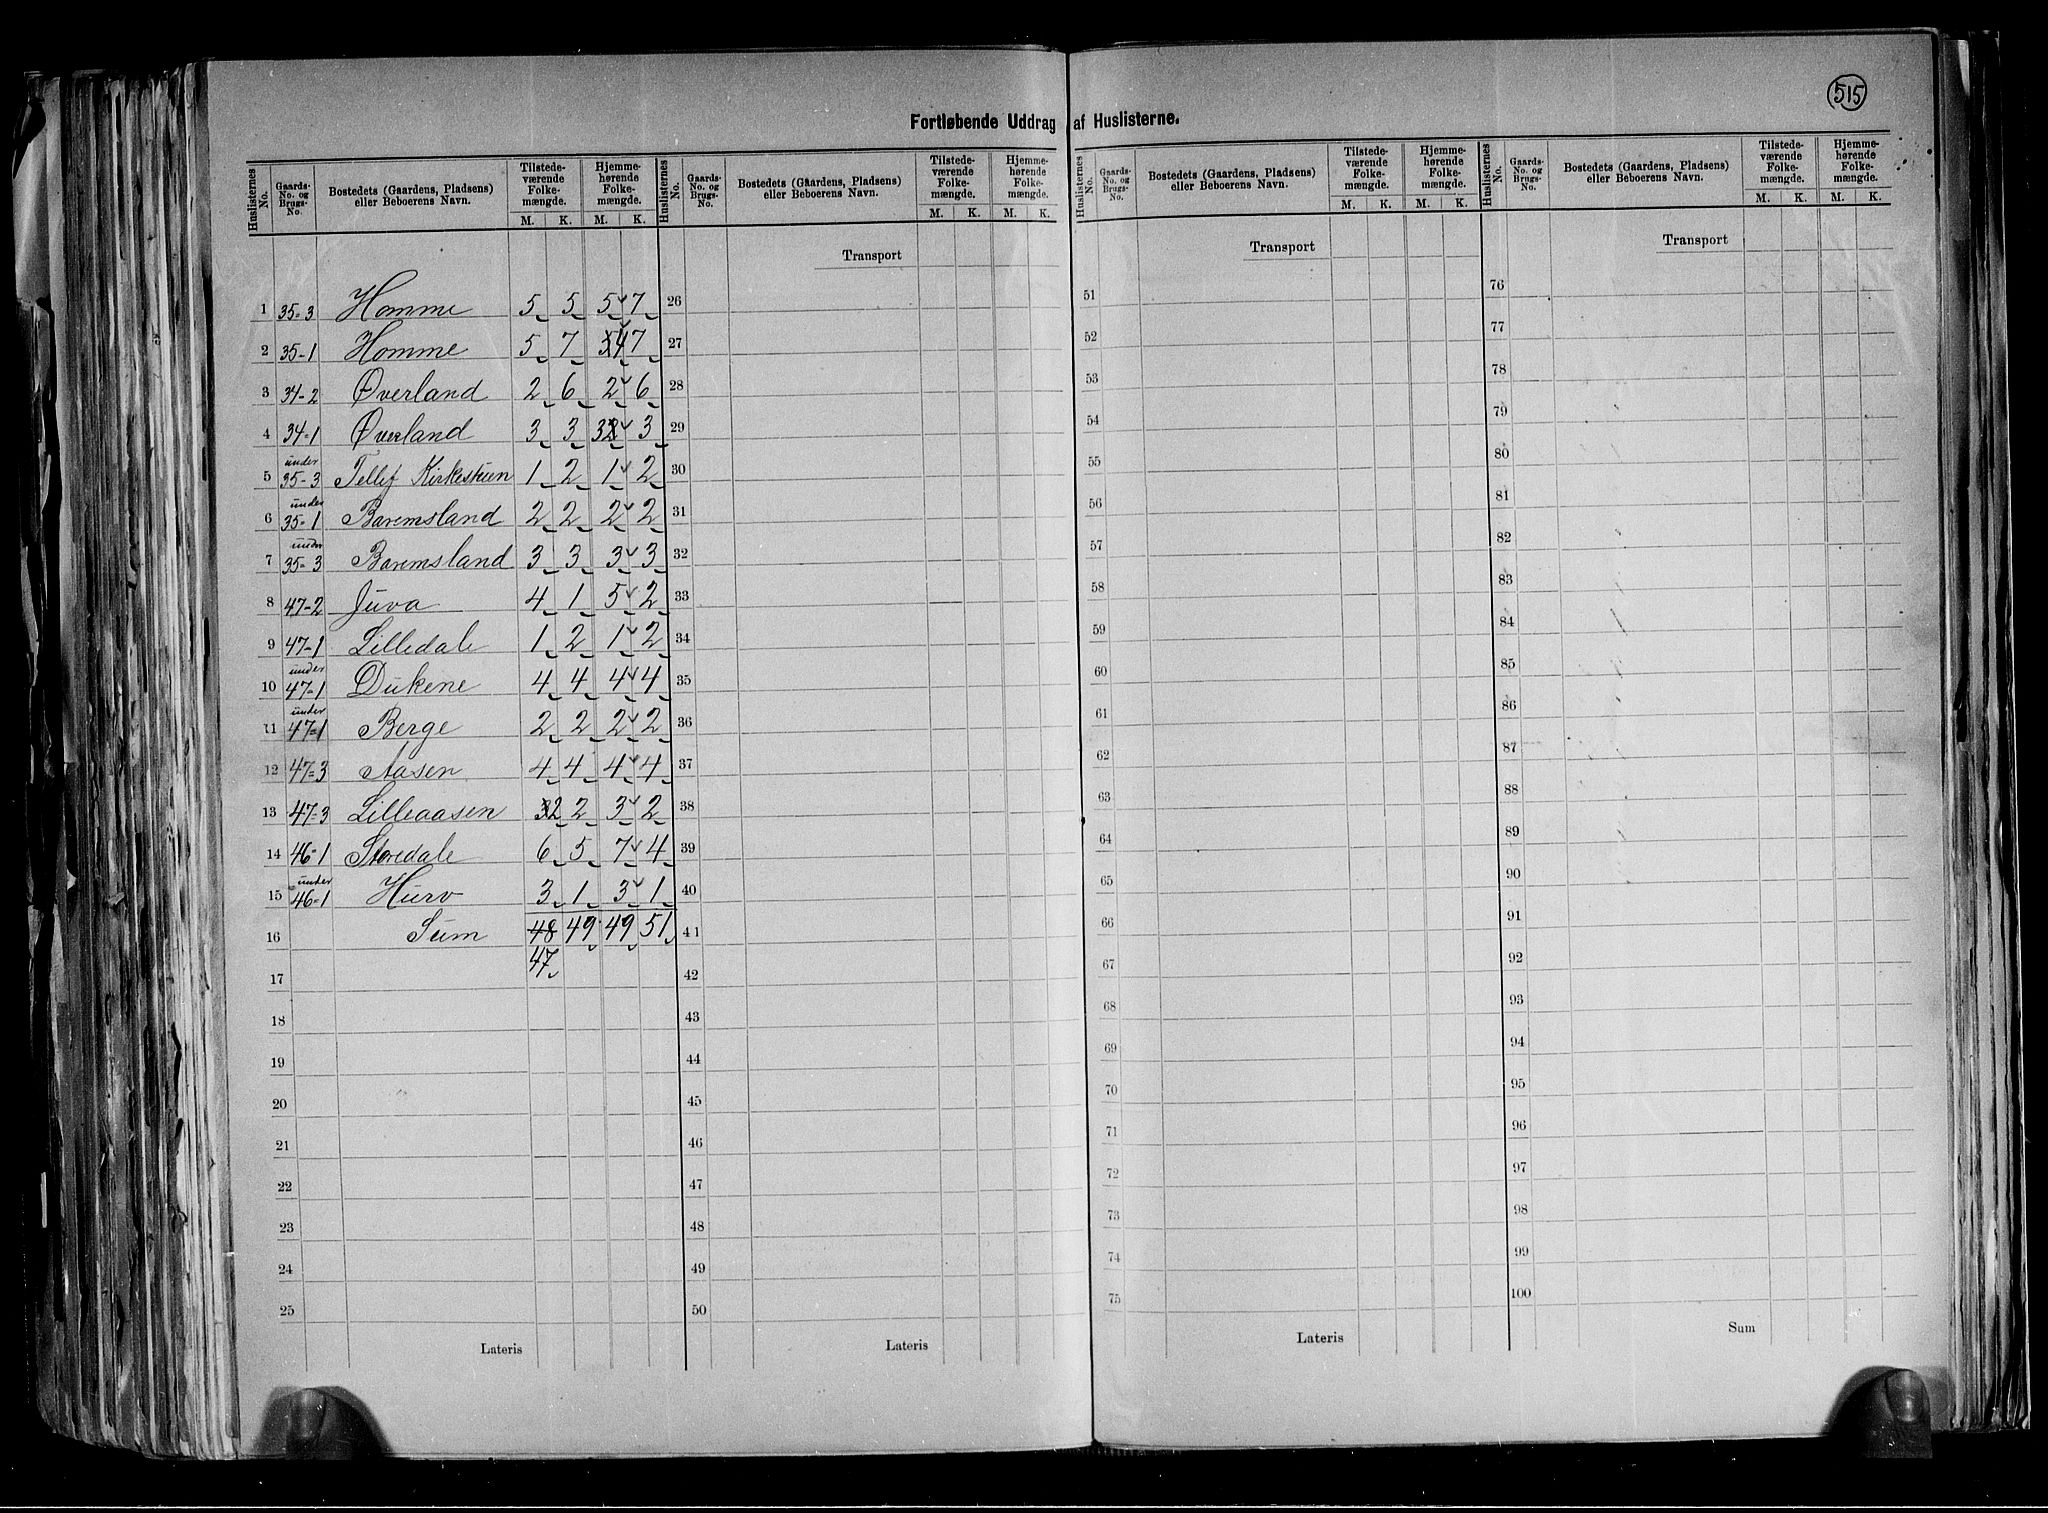 515
Fortløbende Uddrag af Huslisterne.
Huslisternes No. Gaards-No. og Brugs-No. Bostedets (Gaardens, Pladsens) eller Beboerens Navn. Tilstedeværende Folkemængde. M. K. Hjemmehørende Folkemængde. M. K.
Huslisternes No. Gaards-No. og Brugs-No. Bostedets (Gaardens, Pladsens) eller Beboerens Navn. Tilstedeværende Folkemængde. M. K. Hjemmehørende Folkemængde. M. K.
Huslisternes No. Gaards-No. og Brugs-No. Bostedets (Gaardens, Pladsens) eller Beboerens Navn. Tilstedeværende Folkemængde. M. K. Hjemmehørende Folkemængde. M. K.
Huslisternes No. Gaards-No. og Brugs-No. Bostedets (Gaardens, Pladsens) eller Beboerens Navn. Tilstedeværende Folkemængde. M. K. Hjemmehørende Folkemængde. M. K.
Transport Transport Transport
1 35-3 Homme 5 5 5 7 26 51 76
2 35-1 Homme 5 7 4 7 27 52 77
3 34-2 Øverland 2 6 2 6 28 53 78
4 34-1 Øverland 3 3 3 3 29 54 79
5 under 35-3 Tellef Kirkestuen 1 2 1 2 30 55 80
6 under 35-1 Baremsland 2 2 2 2 31 56 81
7 under 35-3 Baremsland 3 3 3 3 32 57 82
8 47-2 Juva 4 1 5 2 33 58 83
9 47-1 Lilledale 1 2 1 2 34 59 84
10 under 47-1 Dukene 4 4 4 4 35 60 85
11 under 47-1 Berge 2 2 2 2 36 61 86
12 47-3 Aasen 4 4 4 4 37 62 87
13 47-3 Lilleaasen 2 2 3 2 38 63 88
14 46-1 Storedale 6 5 7 4 39 64 89
15 under 46-1 Hurv 3 1 3 1 40 65 90
16 Sum 48 49 49 51 41 66 91
17 47 42 67 92
18 43 68 93
19 44 69 94
20 45 70 95
21 46 71 96
22 47 72 97
23 48 73 98
24 49 74 99
25 50 75 100
Lateris Lateris Lateris Sum